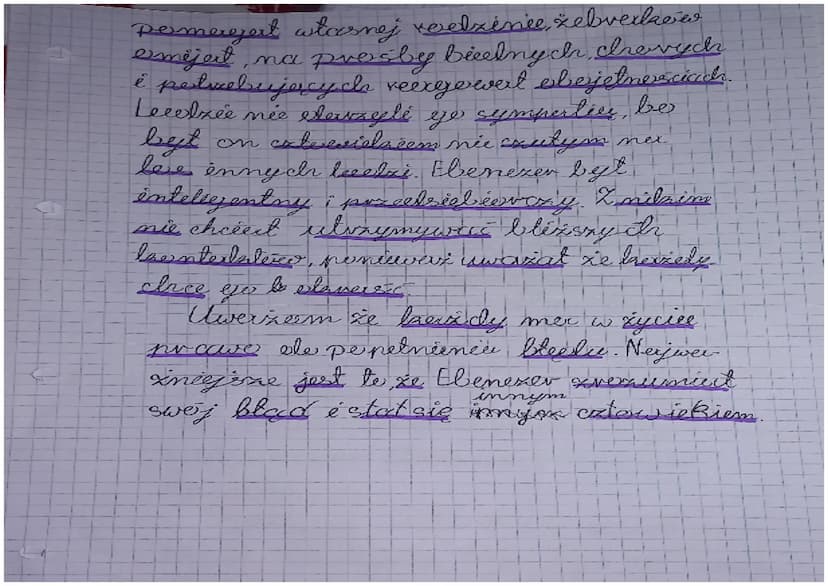 pomagał własnej rodzinie, żebraków
omijał, na prośby biednych, chorych
i potrzebujących reagował obojętnościach.
Ludzie nie darzyli go sympatią, bo
był on człowiekiem nie czułym na
los innych ludzi. Ebenezer był
inteligentny i przedsiębiorczy. Z nikim
nie chciał utrzymywać bliższych
kontaktów, ponieważ uważał że każdy
chce go okraść.
Uważam że każdy ma w życiu
prawo do popełnienia błędu. Najwa
żniejsze jest to, że Ebenezer zrozumiał
swój błąd i stał się innym człowiekiem.